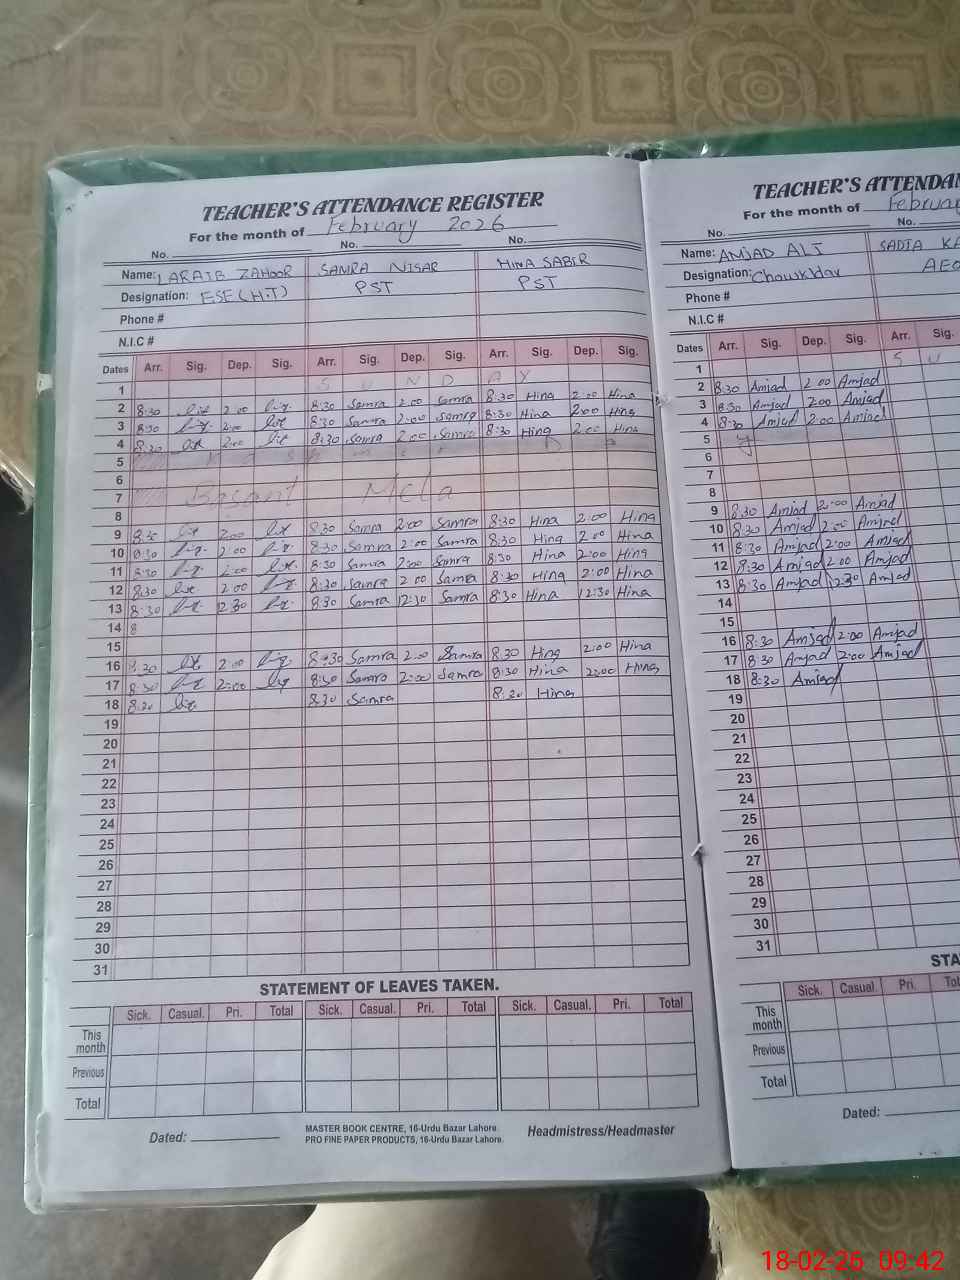 TEACHER'S ATTENDANCE REGISTER
For the month of February 2026
No. No. No.
Name: LARAIB ZAHOOR SAMRA NISAR HINA SABIR
Designation: ESE(H.T) PST PST
Phone #
N.I.C #
Dates Arr. Sig. Dep. Sig. Arr. Sig. Dep. Sig. Arr. Sig. Dep. Sig.
1 S U N D A Y
2 8:30 2:00 8:30 Samra 2:00 Samra 8:30 Hina 2:00 Hina
3 8:30 2:00 8:30 Samra 2:00 Samra 8:30 Hina 2:00 Hina
4 8:30 2:00 8:30 Samra 2:00 Samra 8:30 Hina 2:00 Hina
5
6
7 Basant Mela
8
9 8:30 2:00 8:30 Samra 2:00 Samra 8:30 Hina 2:00 Hina
10 8:30 2:00 8:30 Samra 2:00 Samra 8:30 Hina 2:00 Hina
11 8:30 2:00 8:30 Samra 2:00 Samra 8:30 Hina 2:00 Hina
12 8:30 2:00 8:30 Samra 2:00 Samra 8:30 Hina 2:00 Hina
13 8:30 12:30 8:30 Samra 12:30 Samra 8:30 Hina 12:30 Hina
14 8
15
16 8:30 2:00 8:30 Samra 2:00 Samra 8:30 Hina 2:00 Hina
17 8:30 2:00 8:30 Samra 2:00 Samra 8:30 Hina 2:00 Hina
18 8:30 8:30 Samra 8:30 Hina
19
20
21
22
23
24
25
26
27
28
29
30
31
STATEMENT OF LEAVES TAKEN.
Sick. Casual. Pri. Total Sick. Casual. Pri. Total Sick. Casual. Pri. Total
This month
Previous
Total
Dated:
MASTER BOOK CENTRE, 16-Urdu Bazar Lahore.
PRO FINE PAPER PRODUCTS, 16-Urdu Bazar Lahore.
Headmistress/Headmaster
TEACHER'S ATTENDAN
For the month of February
No. No.
Name: AMJAD ALI SADIA
Designation: Chowkidar AEO
Phone #
N.I.C #
Dates Arr. Sig. Dep. Sig. Arr. Sig.
1 S U
2 8:30 Amjad 2:00 Amjad
3 8:30 Amjad 2:00 Amjad
4 8:30 Amjad 2:00 Amjad
5 y
6
7
8
9 8:30 Amjad 2:00 Amjad
10 8:30 Amjad 2:00 Amjad
11 8:30 Amjad 2:00 Amjad
12 8:30 Amjad 2:00 Amjad
13 8:30 Amjad 12:30 Amjad
14
15
16 8:30 Amjad 2:00 Amjad
17 8:30 Amjad 2:00 Amjad
18 8:30 Amjad
19
20
21
22
23
24
25
26
27
28
29
30
31
STA
Sick. Casual. Pri. Tot
This month
Previous
Total
Dated:
18-02-26 09:42